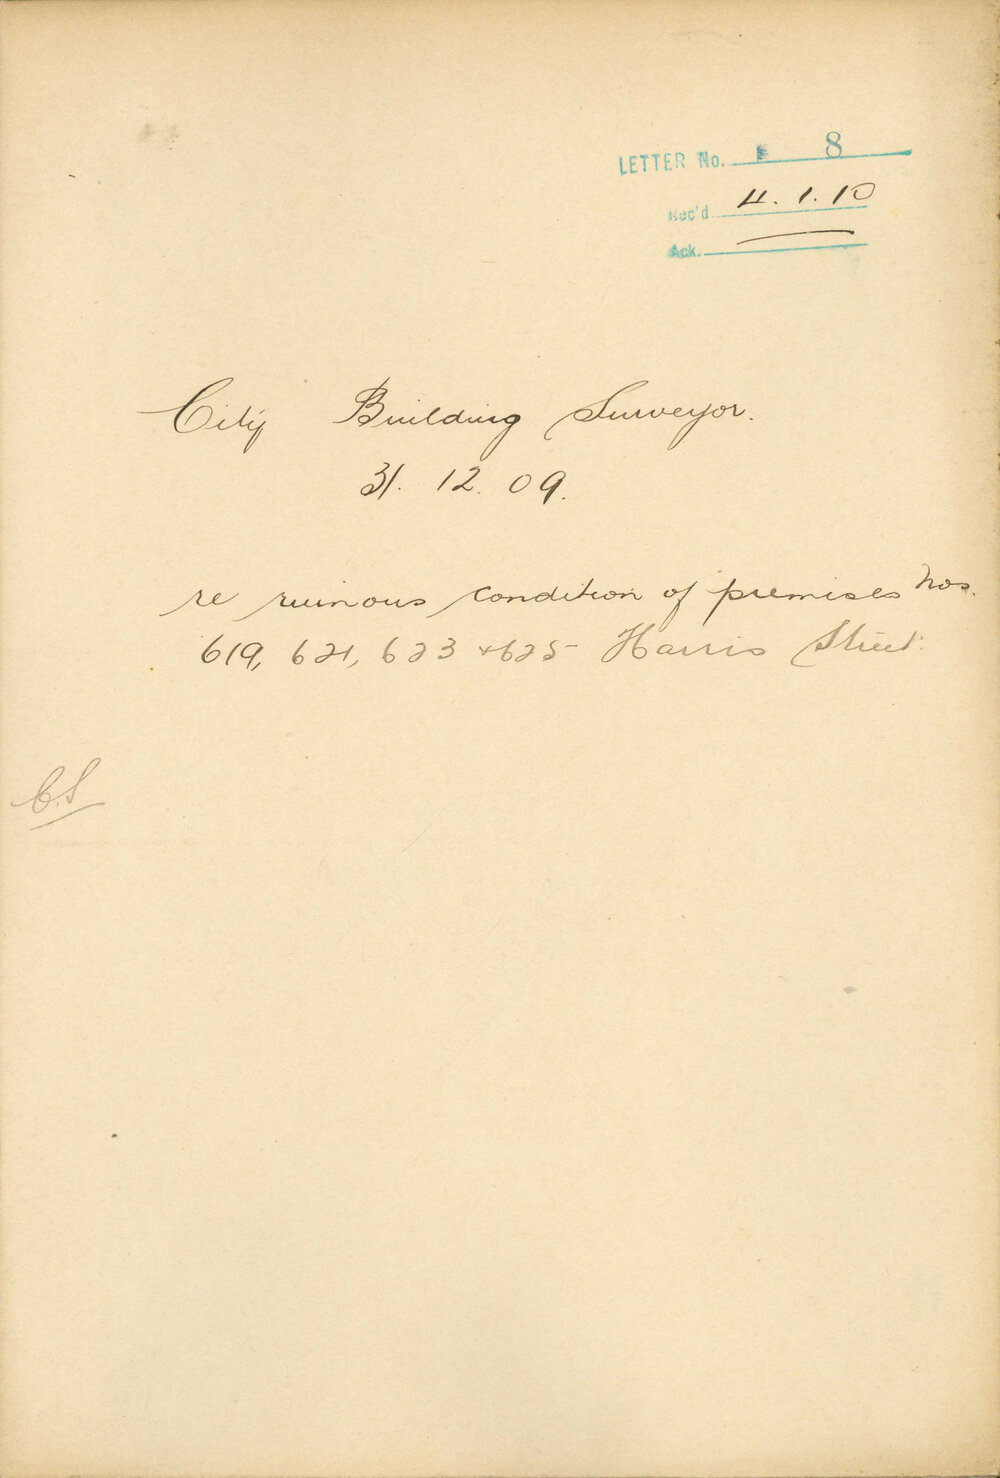 LETTER No. 8
Rec'd 4.1.10
Ack.
City Building Surveyor.
31. 12. 09.
re ruinous condition of premises Nos.
619, 621, 623 & 625 Harris Street.
C.S